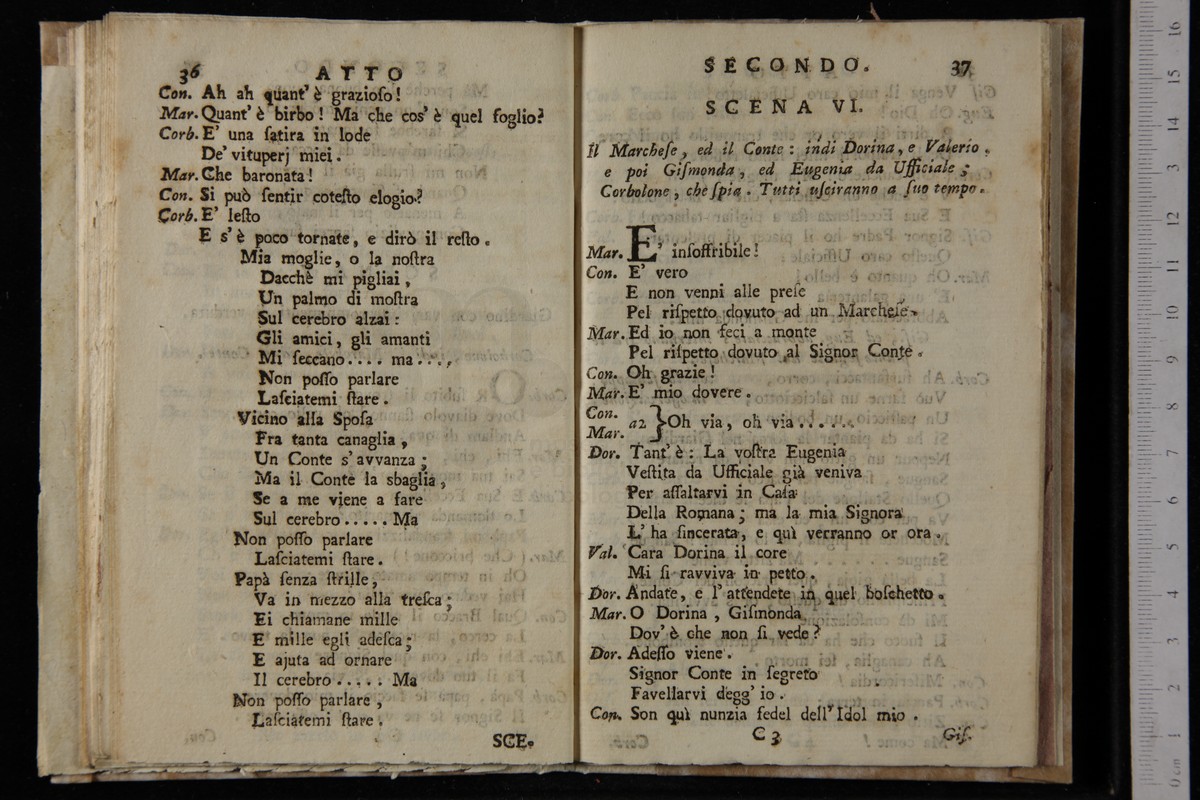 36 ATTO
Con. Ah ah quant' è grazioſo!
Mar. Quant' è birbo! Ma che cos' è quel foglio?
Corb. E' una ſatira in lode
De' vituperj miei.
Mar. Che baronata!
Con. Si può ſentir coteſto elogio?
Corb. E' leſto
E s' è poco tornate, e dirò il reſto.
Mia moglie, o la noſtra
Dacchè mi pigliai,
Un palmo di moſtra
Sul cerebro alzai:
Gli amici, gli amanti
Mi ſeccano.... ma....
Non poſſo parlare
Laſciatemi ſtare.
Vicino alla Spoſa
Fra tanta canaglia,
Un Conte s' avvanza;
Ma il Conte la sbaglia,
Se a me viene a fare
Sul cerebro..... Ma
Non poſſo parlare
Laſciatemi ſtare.
Papà ſenza ſtrille,
Va in mezzo alla treſca;
Ei chiamane mille
E' mille egli adeſca;
E ajuta ad ornare
Il cerebro..... Ma
Non poſſo parlare,
Laſciatemi ſtare.
SCE-
SECONDO. 37
SCENA VI.
Il Marcheſe, ed il Conte: indi Dorina, e Valerio,
e poi Giſmonda, ed Eugenia da Ufficiale;
Corbolone, che ſpia. Tutti uſciranno a ſuo tempo.
Mar. E' inſoffribile!
Con. E' vero
E non venni alle preſe
Pel riſpetto dovuto ad un Marcheſe.
Mar. Ed io non feci a monte
Pel riſpetto dovuto al Signor Conte.
Con. Oh grazie!
Mar. E' mio dovere.
Con. Mar. a2 } Oh via, oh via......
Dor. Tant' è: La voſtra Eugenia
Veſtita da Ufficiale già veniva
Per aſſaltarvi in Caſa
Della Romana; ma la mia Signora
L' ha ſincerata, e quì verranno or ora.
Val. Cara Dorina il core
Mi ſi ravviva in petto.
Dor. Andate, e l' attendete in quel boſchetto.
Mar. O Dorina, Giſmonda
Dov' è che non ſi vede?
Dor. Adeſſo viene.
Signor Conte in ſegreto
Favellarvi degg' io.
Con. Son quì nunzia fedel dell' Idol mio.
C 3 Giſ.